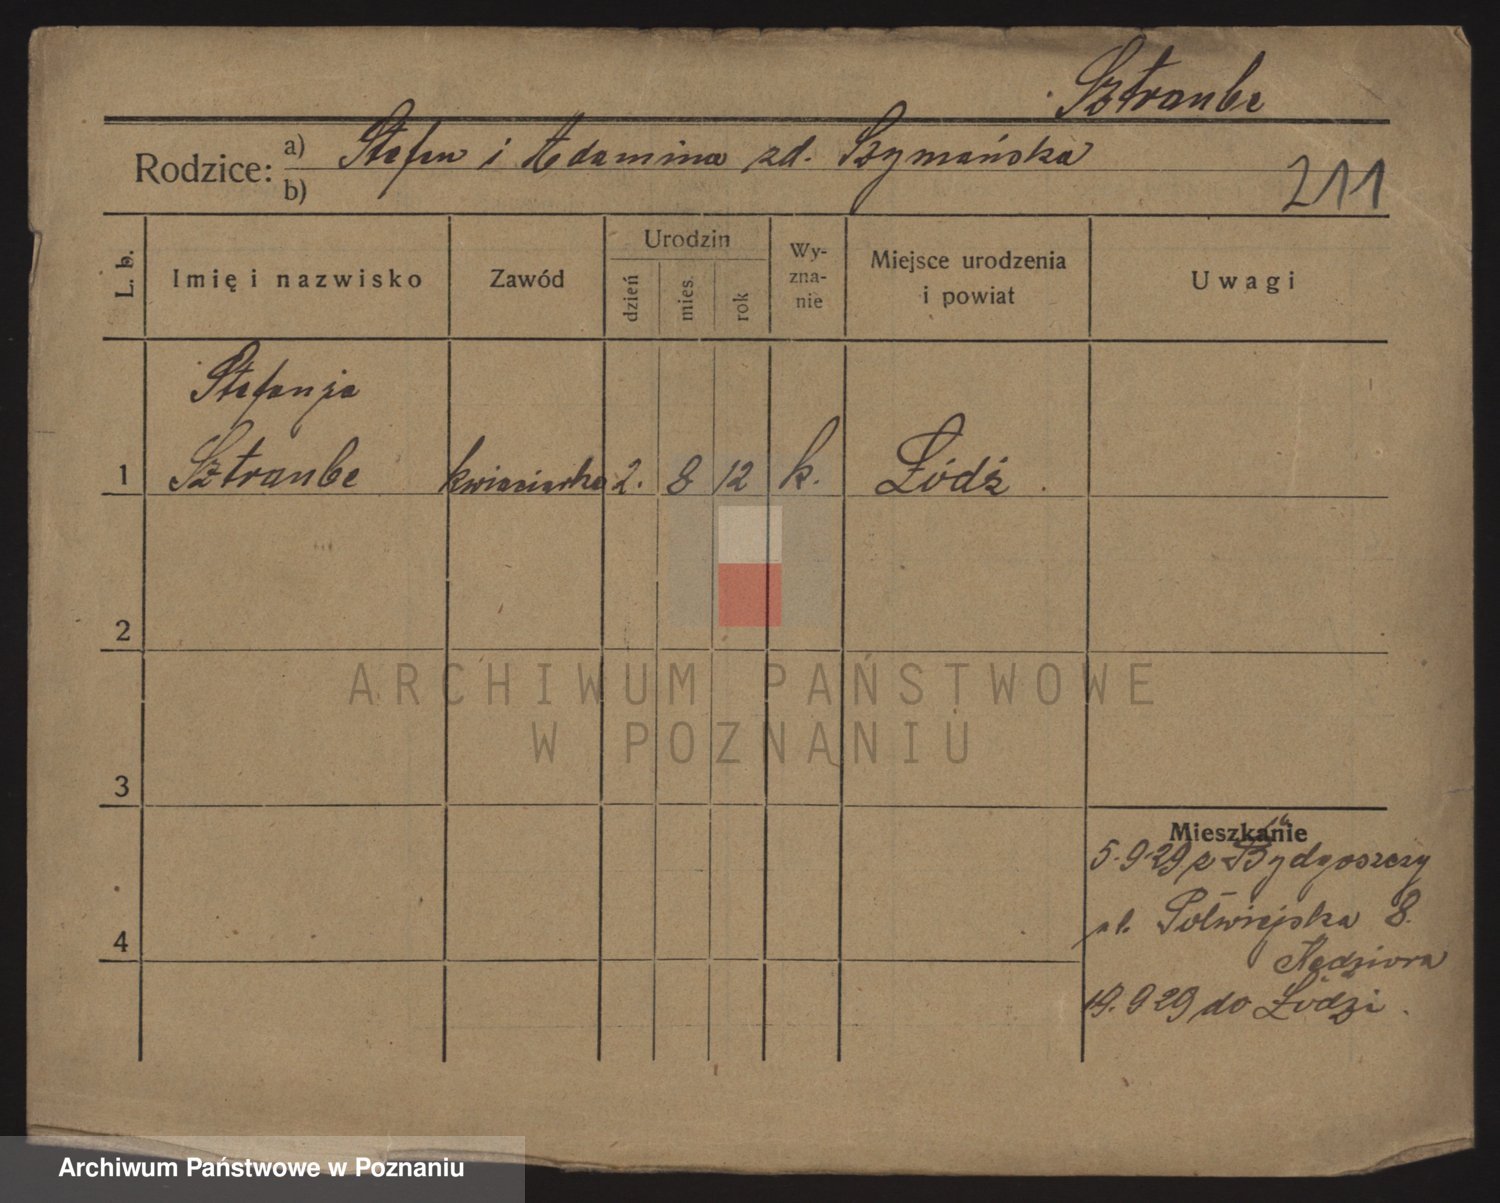 Sztraube
Rodzice: a) Stefan i Adamina zd. Szymańska
b)
211
L. b.
Imię i nazwisko
Zawód
Urodzin
dzień
mies.
rok
Wy-
zna-
nie
Miejsce urodzenia
i powiat
Uwagi
Stefanja
1 Sztraube kwiaciarka 2. 8 12 k. Łódź.
2
3
4
Mieszkanie
5.9.29 z Bydgoszczy
ul. Półwiejska 8.
Nędziora
19.9.29 do Łodzi.
ARCHIWUM PAŃSTWOWE
W POZNANIU
Archiwum Państwowe w Poznaniu